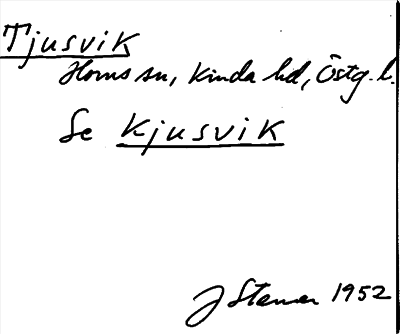 Tjusvik
Horns sn, Kinda hd, Östg. l.
Se Kjusvik
J Stenar 1952